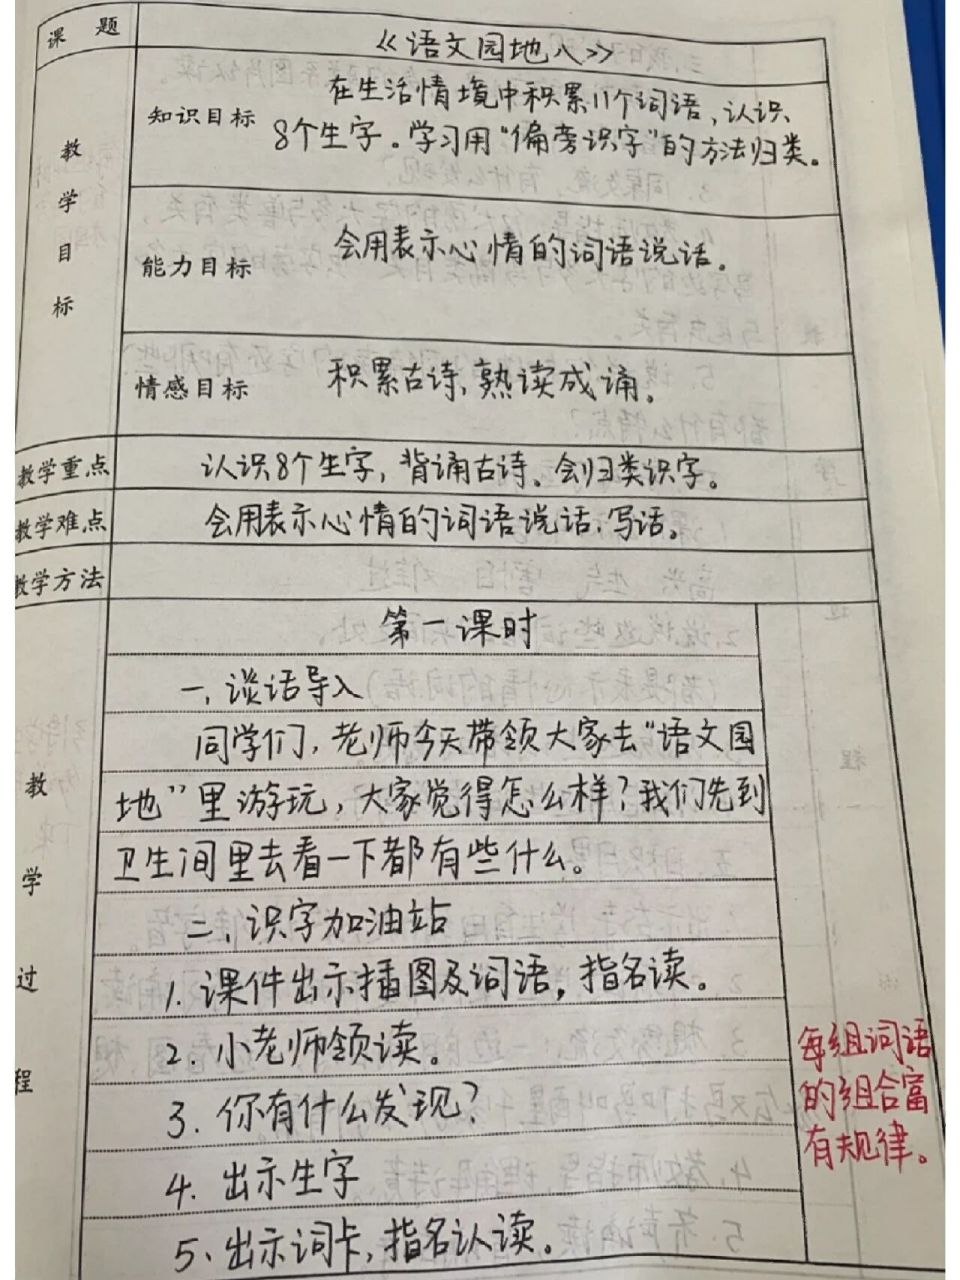 课 题 《语文园地八》
教学目标
知识目标 在生活情境中积累11个词语,认识
8个生字。学习用“偏旁识字”的方法归类。
能力目标 会用表示心情的词语说话。
情感目标 积累古诗,熟读成诵。
教学重点 认识8个生字,背诵古诗。会归类识字。
教学难点 会用表示心情的词语说话、写话。
教学方法
教学过程
第一课时
一、谈话导入
同学们,老师今天带领大家去“语文园
地”里游玩,大家觉得怎么样?我们先到
卫生间里去看一下都有些什么。
二、识字加油站
1. 课件出示插图及词语,指名读。
2. 小老师领读。
3. 你有什么发现?
4. 出示生字
5、出示词卡,指名认读。
每组词语
的组合富
有规律。